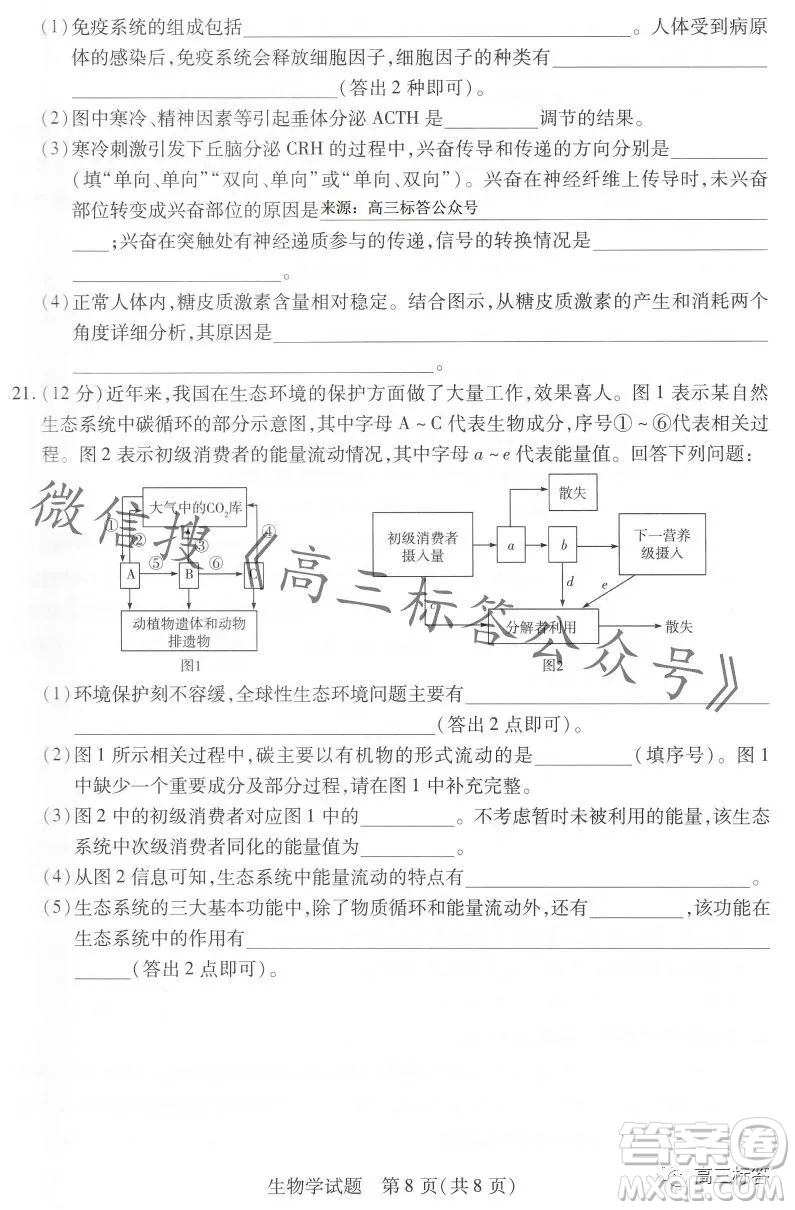 (1)免疫系统的组成包括________。人体受到病原
体的感染后,免疫系统会释放细胞因子,细胞因子的种类有________
________(答出2种即可)。
(2)图中寒冷、精神因素等引起垂体分泌ACTH是________调节的结果。
(3)寒冷刺激引发下丘脑分泌CRH的过程中,兴奋传导和传递的方向分别是________
(填“单向、单向”“双向、双向”或“单向、双向”)。兴奋在神经纤维上传导时,未兴奋
部位转变成兴奋部位的原因是来源:高三标答公众号
____;兴奋在突触处有神经递质参与的传递,信号的转换情况是________
________。
(4)正常人体内,糖皮质激素含量相对稳定。结合图示,从糖皮质激素的产生和消耗两个
角度详细分析,其原因是________
________。
21.(12分)近年来,我国在生态环境的保护方面做了大量工作,效果喜人。图1表示某自然
生态系统中碳循环的部分示意图,其中字母A~C代表生物成分,序号①~⑥代表相关过
程。图2表示初级消费者的能量流动情况,其中字母a~e代表能量值。回答下列问题:
大气中的CO₂库
① ② ③ ④
A ⑤ B ⑥ C
动植物遗体和动物
排遗物
图1
散失
初级消费者
摄入量
a b
下一营养
级摄入
c d e
分解者利用
散失
图2
微信搜《高三标答公众号》
(1)环境保护刻不容缓,全球性生态环境问题主要有________
________(答出2点即可)。
(2)图1所示相关过程中,碳主要以有机物的形式流动的是________(填序号)。图1
中缺少一个重要成分及部分过程,请在图1中补充完整。
(3)图2中的初级消费者对应图1中的________。不考虑暂时未被利用的能量,该生态
系统中次级消费者同化的能量值为________。
(4)从图2信息可知,生态系统中能量流动的特点有________。
(5)生态系统的三大基本功能中,除了物质循环和能量流动外,还有________,该功能在
生态系统中的作用有________
____(答出2点即可)。
生物学试题 第8页(共8页)
高三标答
答案圈
MXQE.COM